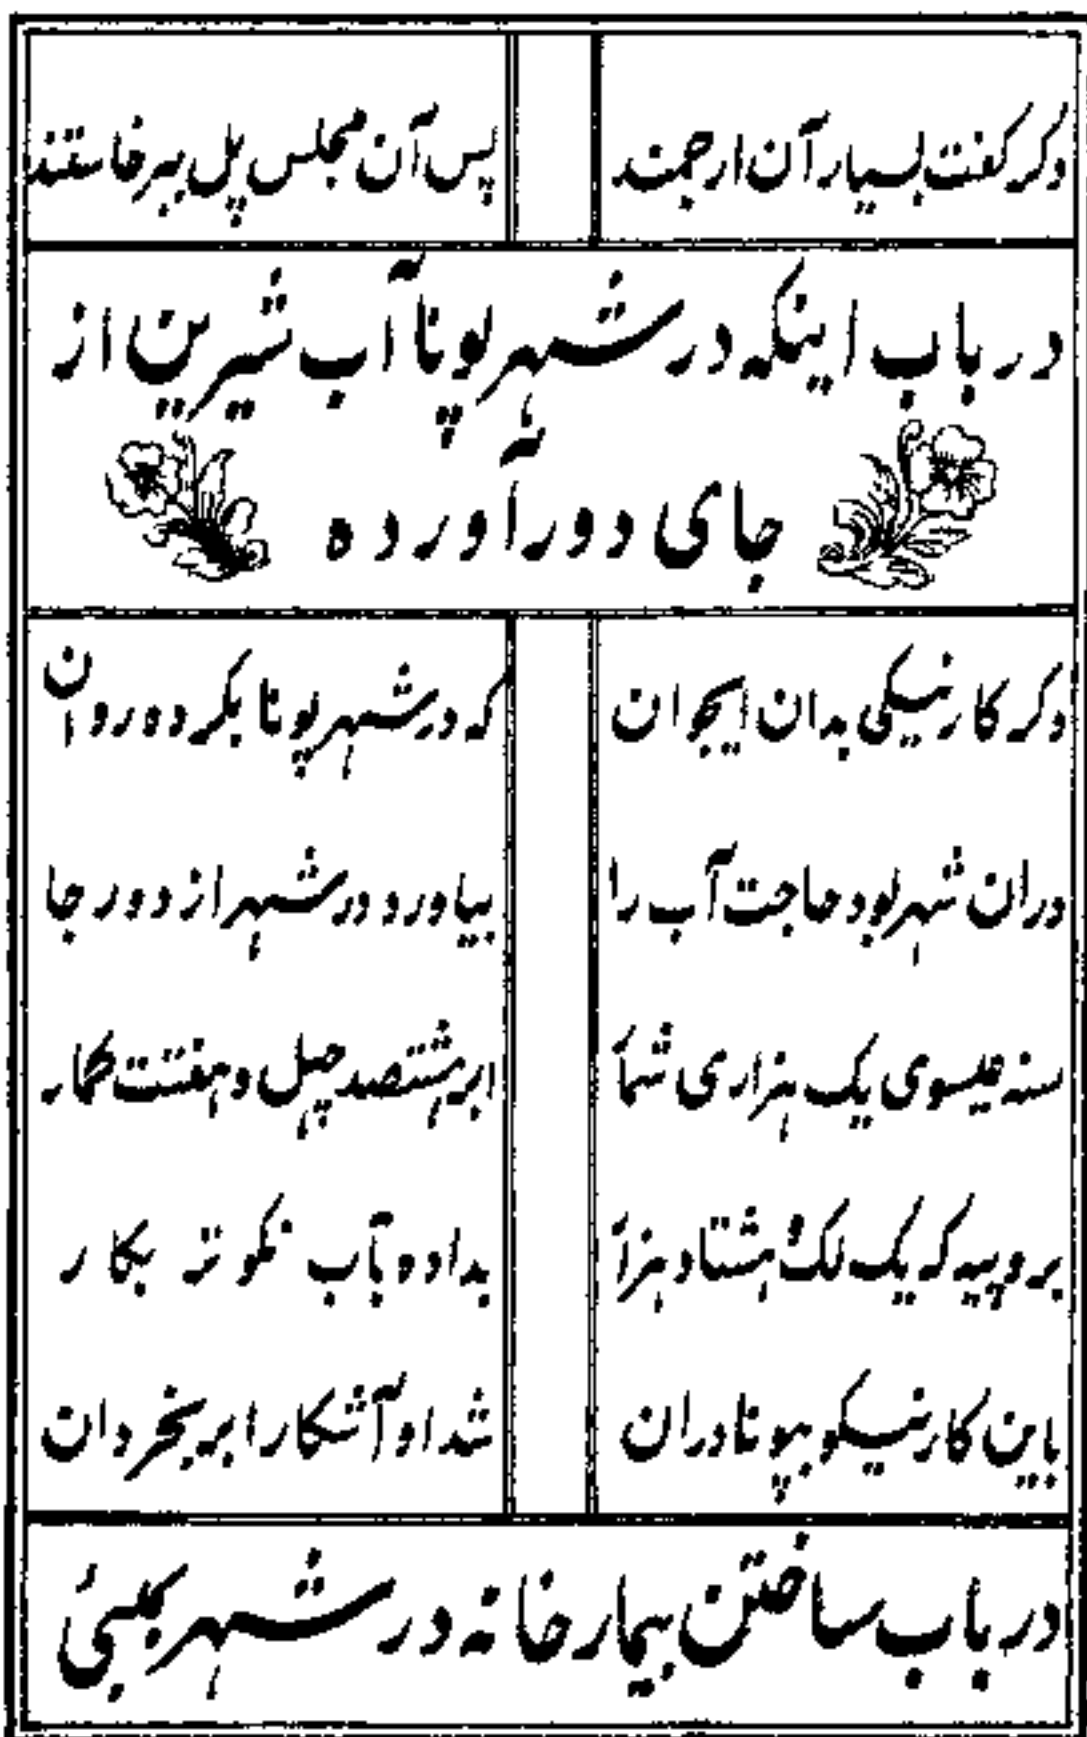 دگر گفت بسیار آن ارجمند	پس آن مجلس پل ببر خاستند
در باب اینکه در شهر پونا آب شیرین از
جای دور آورده
دگر کار نیکی بدان ایجوان	که در شهر پونا بکرده روان
دران شهر بود حاجت آب را	بیاورد در شهر از دور جا
سنه عیسوی یک هزاری شمار	ابر هشتصد چهل و هفت
بروپیه که یک لک و هشتاد هزار	بداده بآب نکو نه بکار
باین کار نیکو بپونا دران	شد او آشکارا بر بخردان
در باب ساختن بیمارخانه در شهر بمبئی